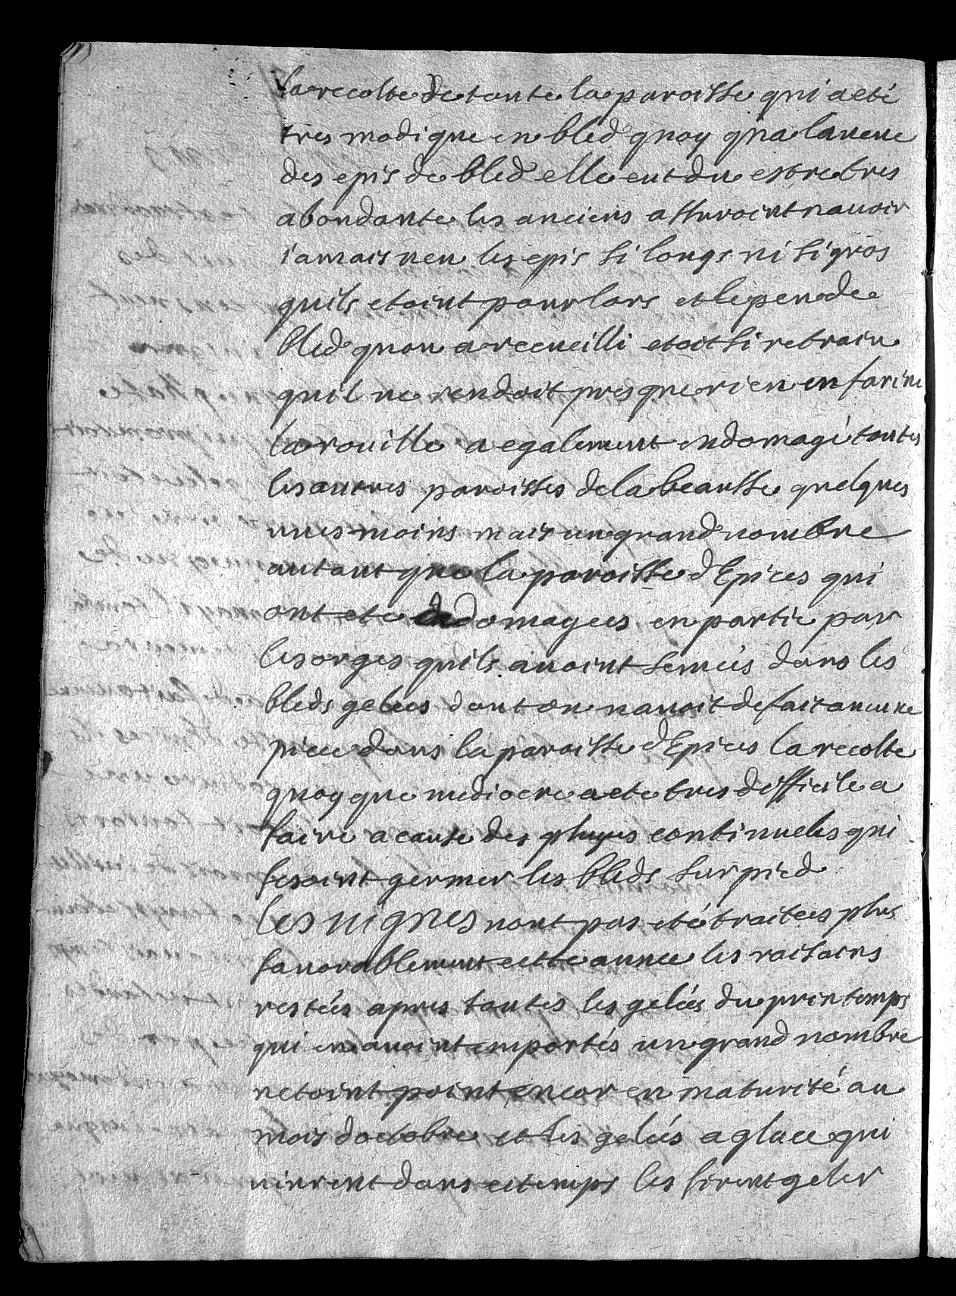 la recolte de toute la paroisse qui a eté
tres modique en bled quoy qua la veue
des epis de bled elle eut du estre tres
abondante les anciens assuroint navoir
iamais veu les epis si longs ni si gros
quils etoint pour lors et le peu de
bled quon a recueilli etoit si retrait
quil ne rendoit presque rien en farine
la rouille a egalement endomagé toutes
les autres paroisses de la beausse quelques
unes moins mais un grand nombre
autant que la paroisse d'Epices qui
ont ete dedomagees en partie par
les orges quils avoint semés dans les
bleds gelees dont on navoit defait aucune
piece dans la paroisse d'Epices la recolte
quoy que mediocre a ete tres difficile a
faire a cause des pluyes continueles qui
fesoint germer les bleds sur pied
les vignes nont pas eté traitees plus
favorablement cette annee les raisins
restés apres toutes les gelées du printemps
qui en avoint emportés un grand nombre
netoint point encor en maturité au
mois doctobre et les gelées a glace qui
vinrent dans ce temps les firent geler